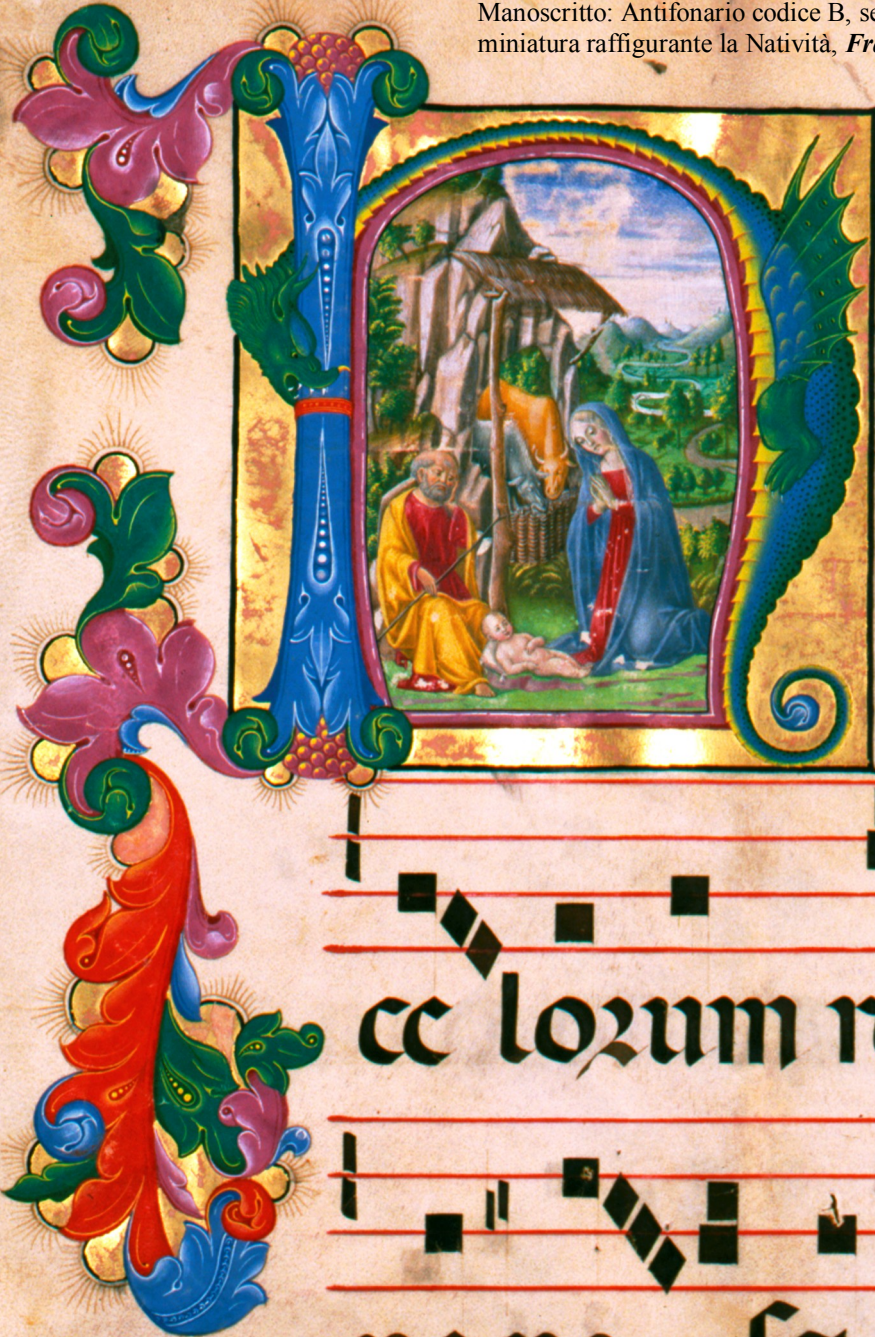 Manoscritto: Antifonario codice B, se
miniatura raffigurante la Natività, Fra
H
cc lorum r